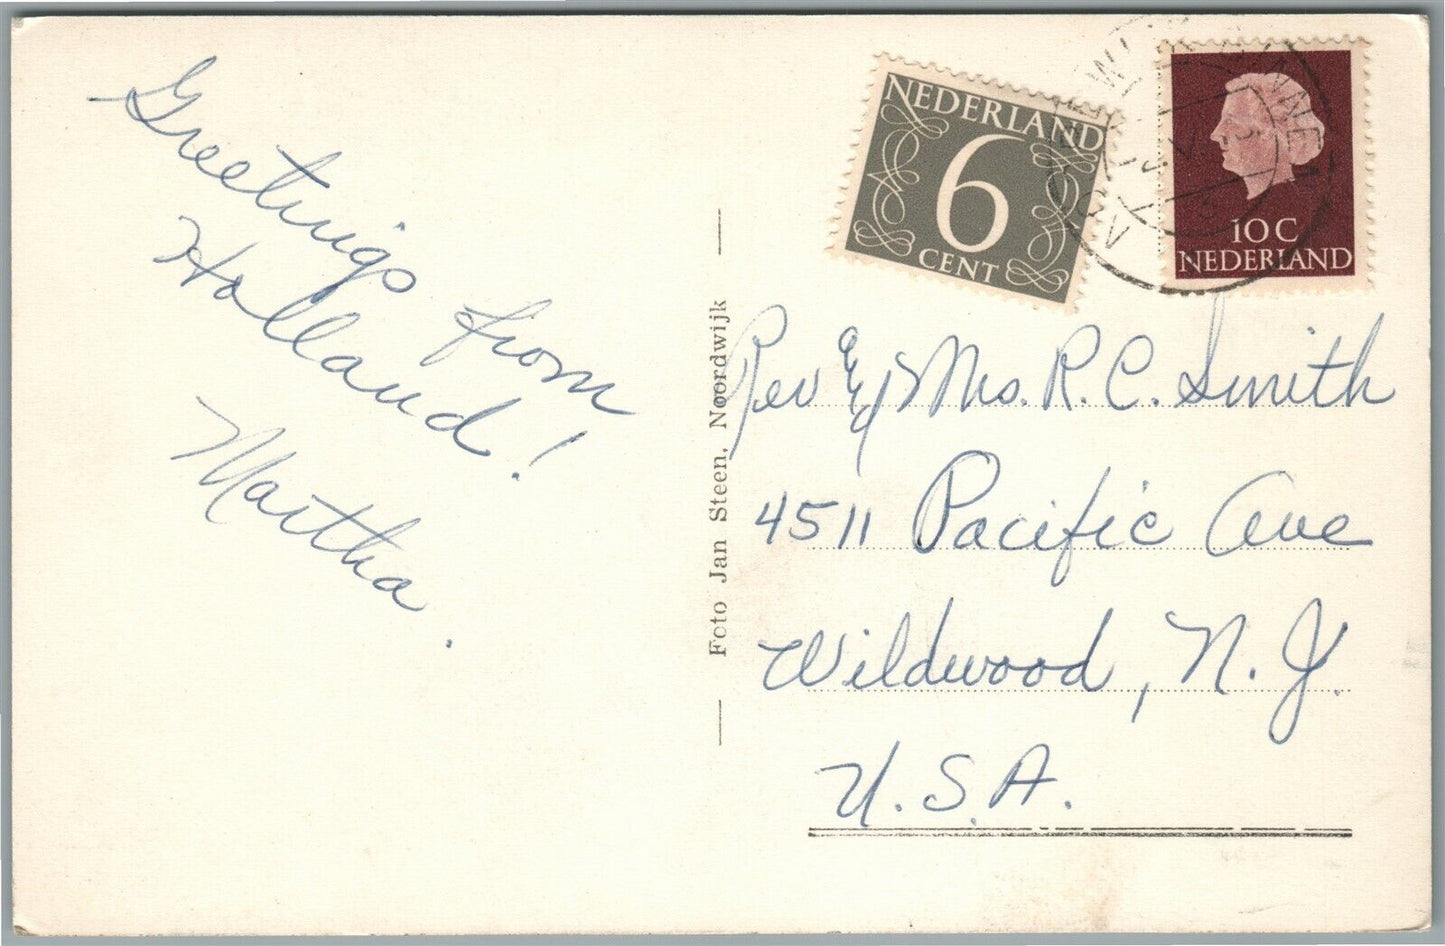 Greetings from
Holland!
Martha.
Foto Jan Steen, Noordwijk
NEDERLAND
6
CENT
10 C
NEDERLAND
Rev & Mrs. R. C. Smith
4511 Pacific Ave
Wildwood, N. J.
U. S. A.